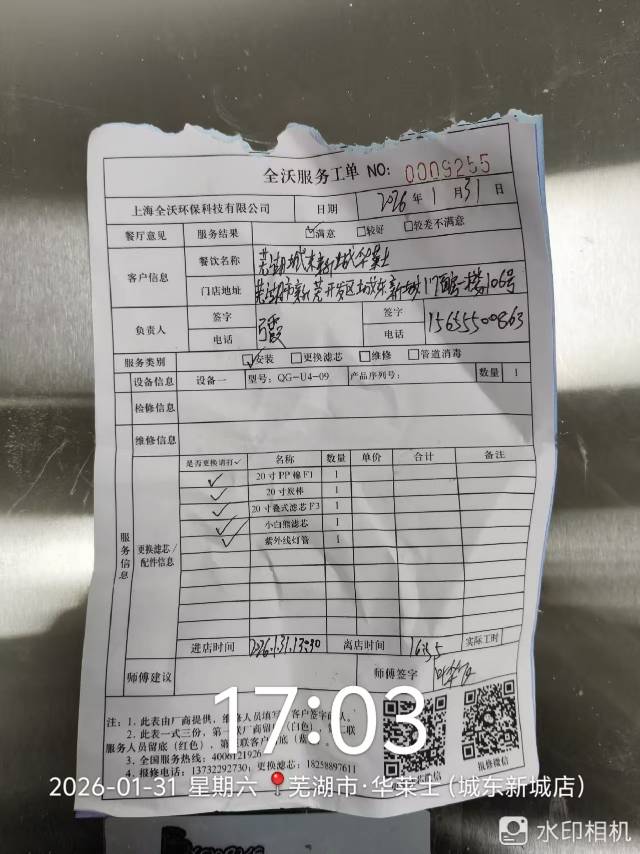 全沃服务工单 NO: 0009255
上海全沃环保科技有限公司 日期 2026年1月31日
餐厅意见 服务结果 ☑满意 □较好 □较差不满意
客户信息 餐饮名称 芜湖城东新城华莱士
门店地址 芜湖市 开发区城东新城 一楼106号
负责人 签字 签字
电话 霞 电话 15655500863
服务类别 ☑安装 □更换滤芯 □维修 □管道消毒
设备信息 设备一 型号: QG-U4-09 产品序列号: 数量 1
检修信息
维修信息
服务信息 更换滤芯/配件信息
是否更换请打✓ 名称 数量 单价 合计 备注
✓ 20寸PP棉F1 1
✓ 20寸炭棒 1
✓ 20寸叠式滤芯F3 1
✓ 小白熊滤芯 1
✓ 紫外线灯管 1
进店时间 2026.1.31.13:30 离店时间 16:35 实际工时
师傅建议 师傅签字
17:03
注: 1. 此表由厂商提供, 维修人员填写, 客户签字确认。
2. 此表一式三份, 第一联厂商留底(白色), 第二联
服务人员留底(红色), 第三联客户留底(蓝
3. 全国服务热线: 4006121926
4. 报修电话: 13732292730; 更换滤芯: 18258897611
报修微信
2026-01-31 星期六 芜湖市·华莱士(城东新城店)
水印相机